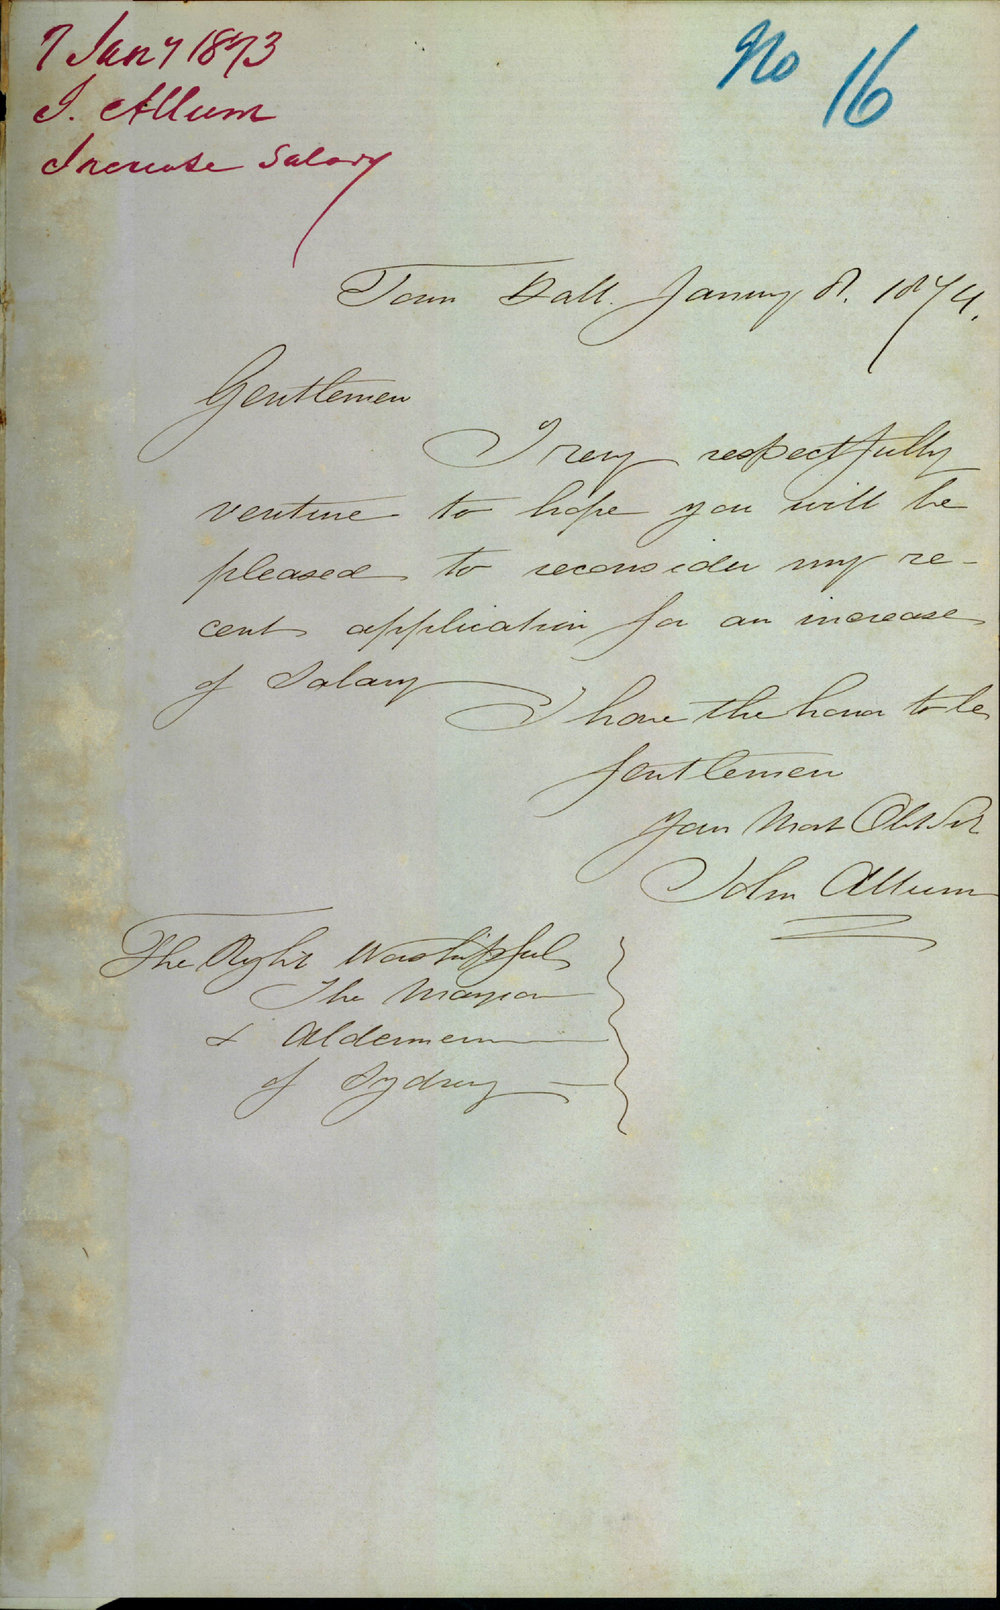 7 Jany 1873
J. Allum
Increase Salary
No 16
Town Hall. January 8. 1874.
Gentlemen
I very respectfully
venture to hope you will be
pleased to reconsider my re-
cent application for an increase
of Salary
I have the honor to be
Gentlemen
Your Most Obt Svt
John Allum
The Right Worshipful
The Mayor
& Aldermen
of Sydney